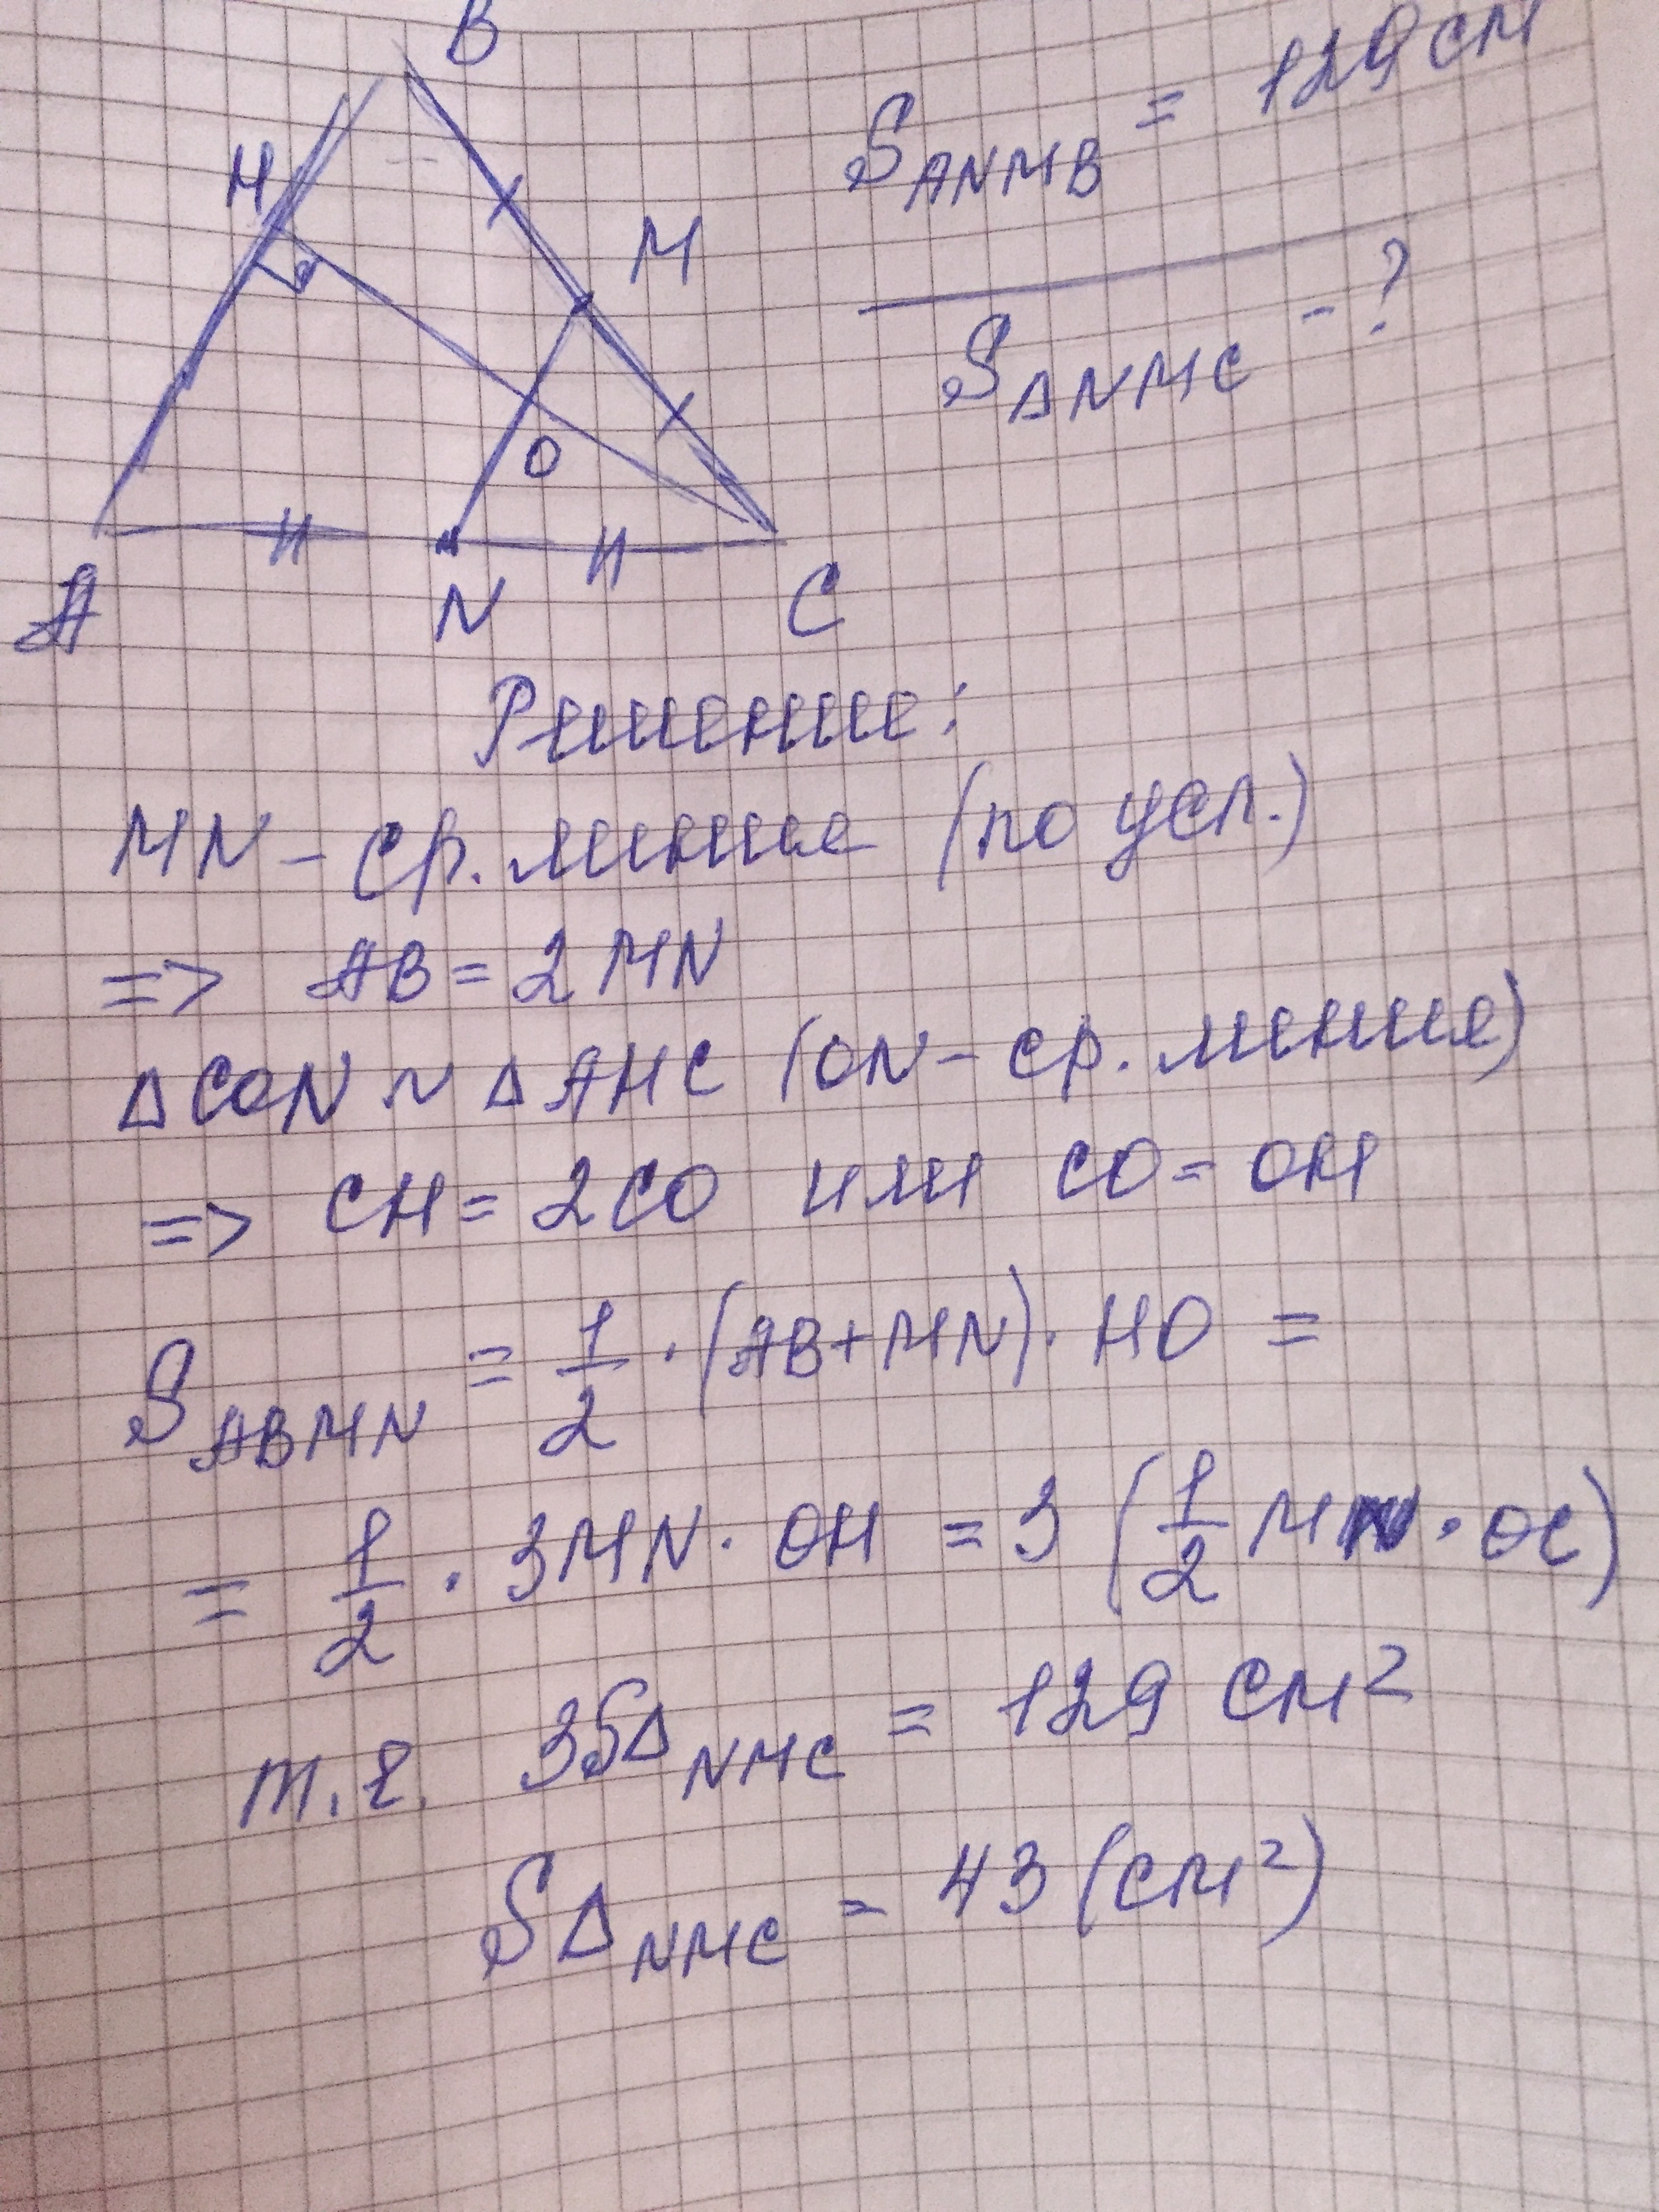 B
H
M
O
A
N
C
S ANMB = 129 см
S ΔNMC - ?
Решение:
MN - ср. линия (по усл.)
=> AB = 2 MN
Δ CON ~ Δ AHC (ON - ср. линия)
=> CH = 2CO или CO = OH
S ABMN = 1/2 · (AB + MN) · HO =
= 1/2 · 3MN · OH = 3 (1/2 MN · OC)
т.е. 3SΔ NMC = 129 см²
SΔ NMC = 43 (см²)